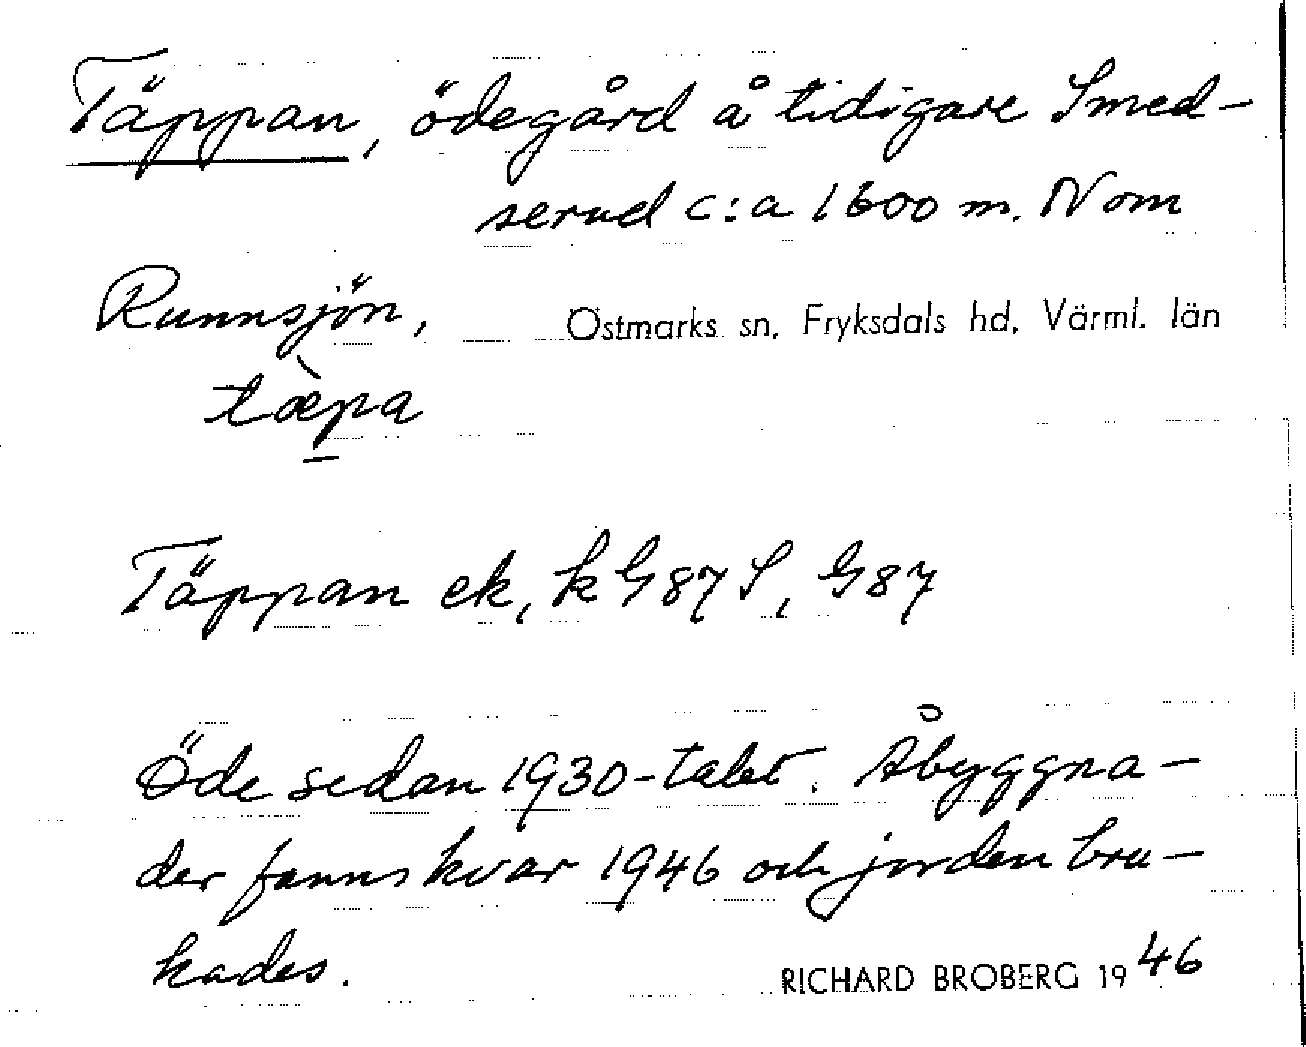 Täppan, ödegård å tidigare Smed-
serud c:a 1600 m. N om
Runnsjön, Östmarks sn, Fryksdals hd, Värml. län
tæ̀pa
Täppan ek, k G87 S, G87
Öde sedan 1930-talet. Åbyggna-
der fanns kvar 1946 och jorden bru-
kades. RICHARD BROBERG 1946